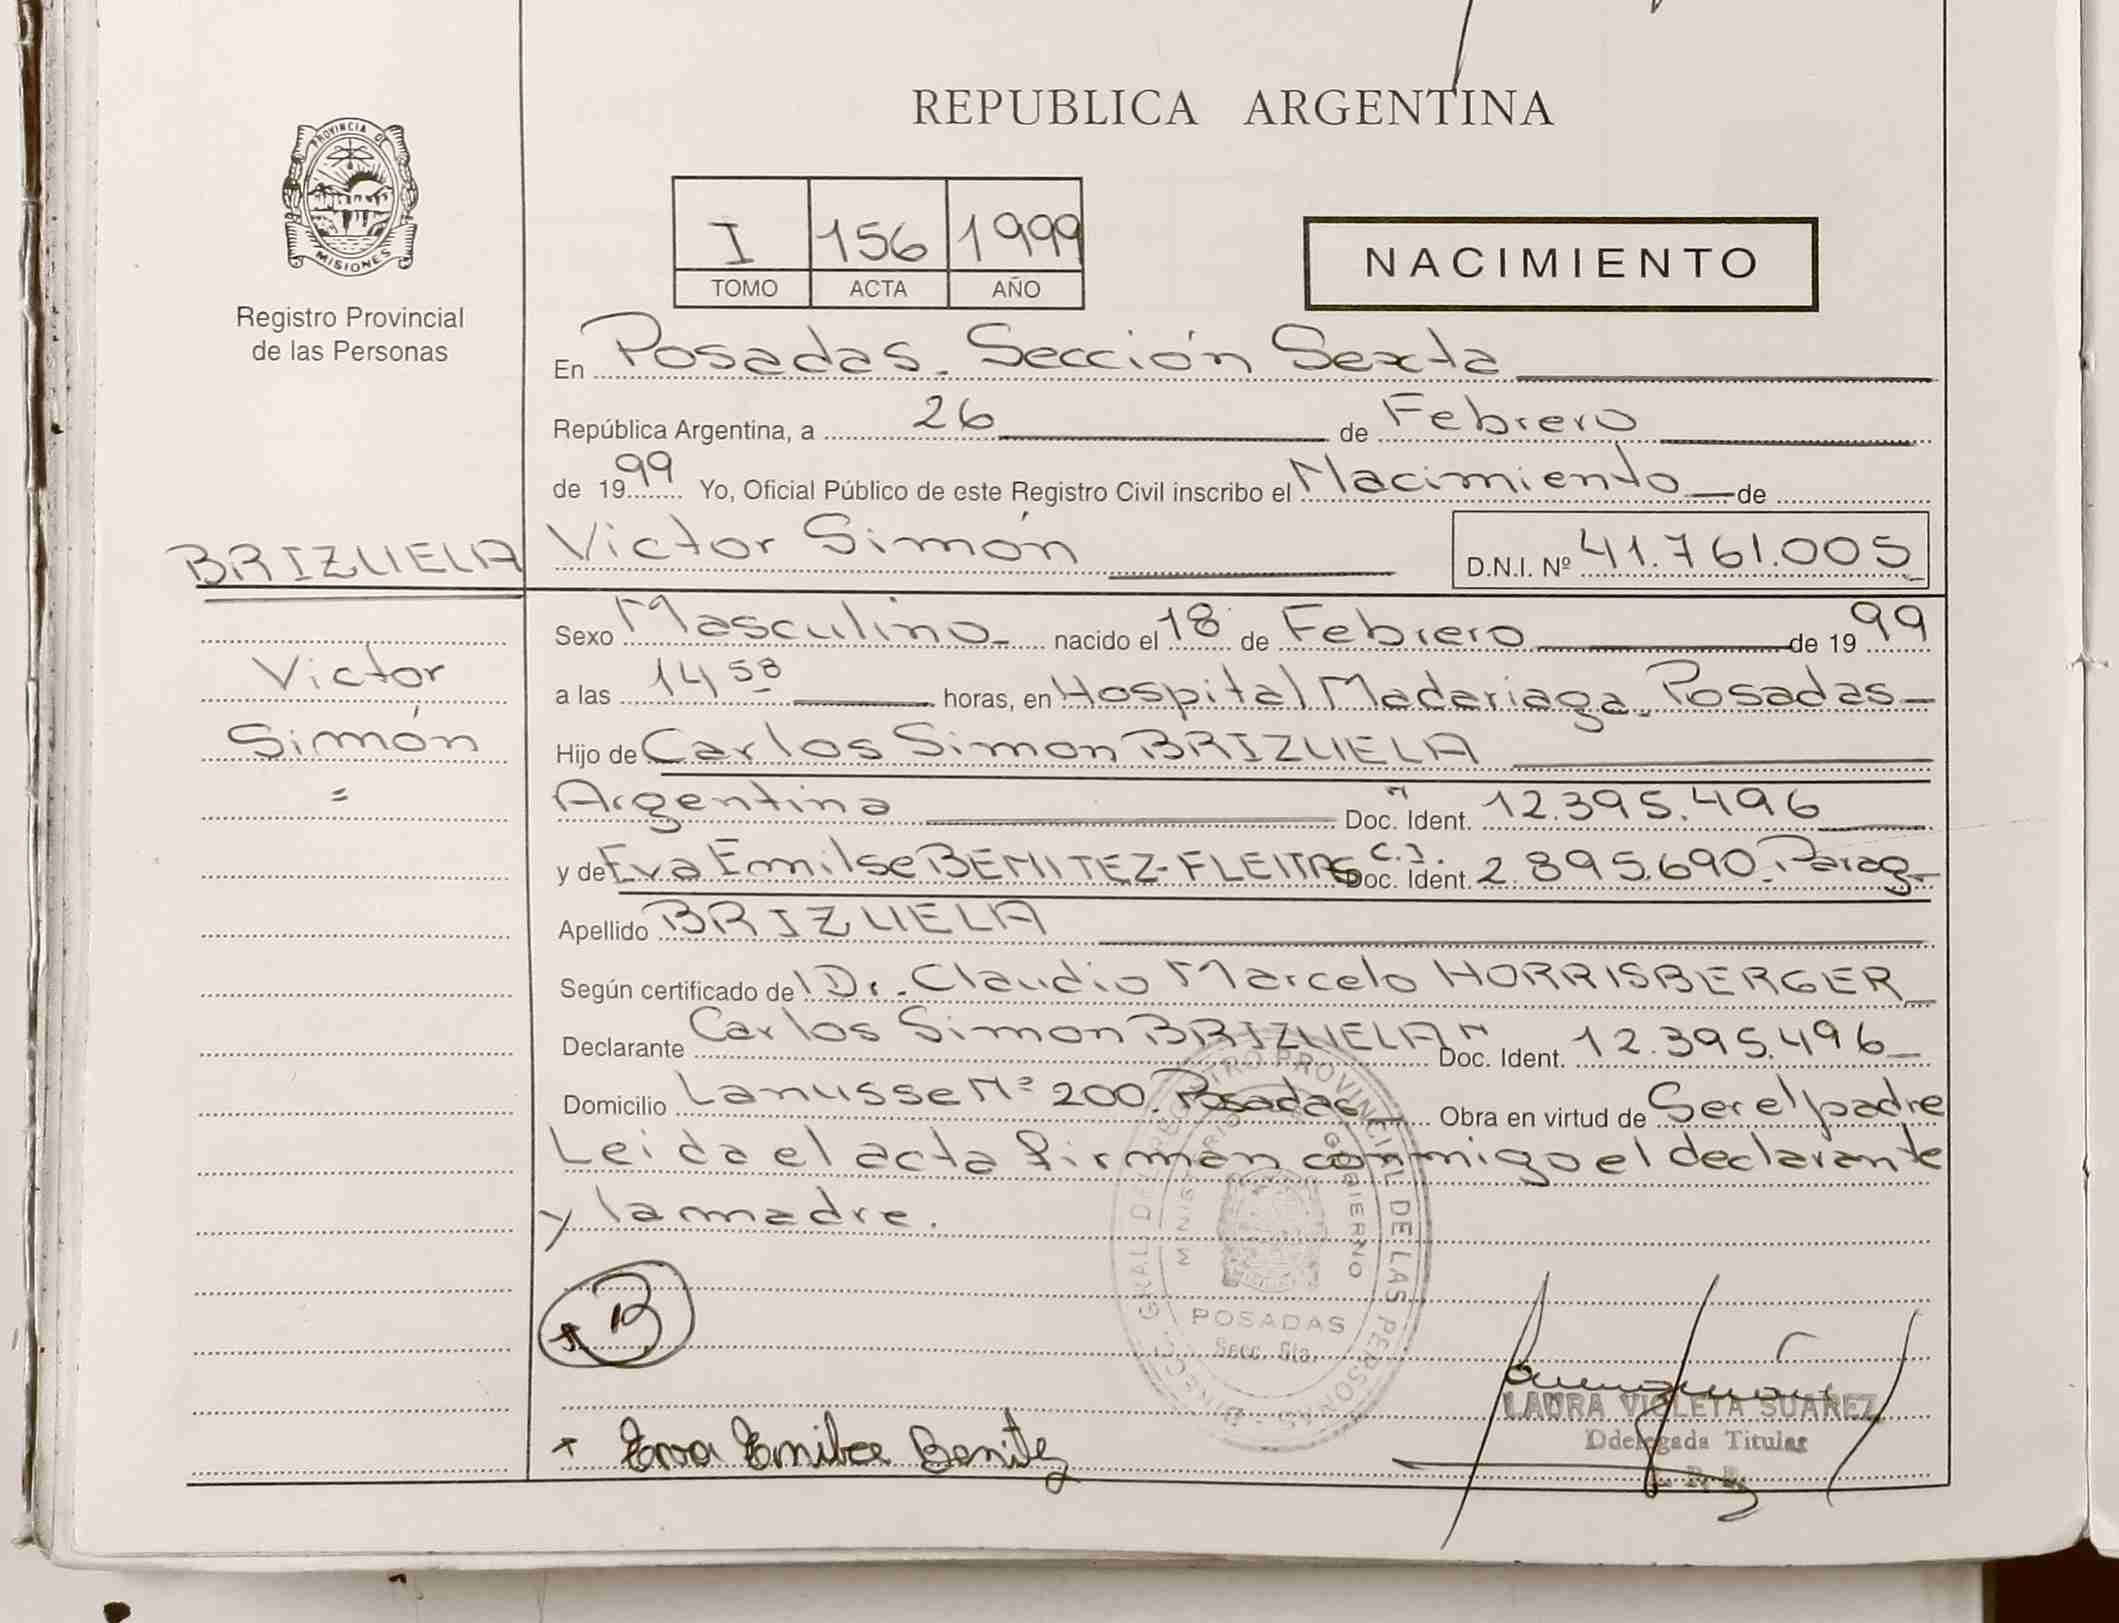 REPUBLICA ARGENTINA
PROVINCIA DE
MISIONES
Registro Provincial
de las Personas
I 156 1999
TOMO ACTA AÑO
NACIMIENTO
En Posadas. Sección Sexta
República Argentina, a 26 de Febrero
de 1999 Yo, Oficial Público de este Registro Civil inscribo el Nacimiento de
BRIZUELA Victor Simón D.N.I. Nº 41.761.005
Sexo Masculino nacido el 18 de Febrero de 1999
Victor
a las 14 58 horas, en Hospital Madariaga. Posadas
Simón
Hijo de Carlos Simon BRIZUELA
=
Argentina Doc. Ident. 12.395.496
y de Eva Emilse BENITEZ-FLEITAS C.I. Doc. Ident. 2.895.690. Parag
Apellido BRIZUELA
Según certificado del Dr. Claudio Marcelo HORRISBERGER
Declarante Carlos Simon BRIZUELA Doc. Ident. 12.395.496
Domicilio Lanusse Nº 200. Posadas Obra en virtud de Ser el padre
Leida el acta firman conmigo el declarante
y la madre.
DIRECC. GRAL. DE REGISTRO PROVINCIAL DE LAS PERSONAS
MINISTERIO GOBIERNO
POSADAS
Secc. 6ta.
B
LAURA VIOLETA SUAREZ
Ddelegada Titular
Eva Emilce Benitez